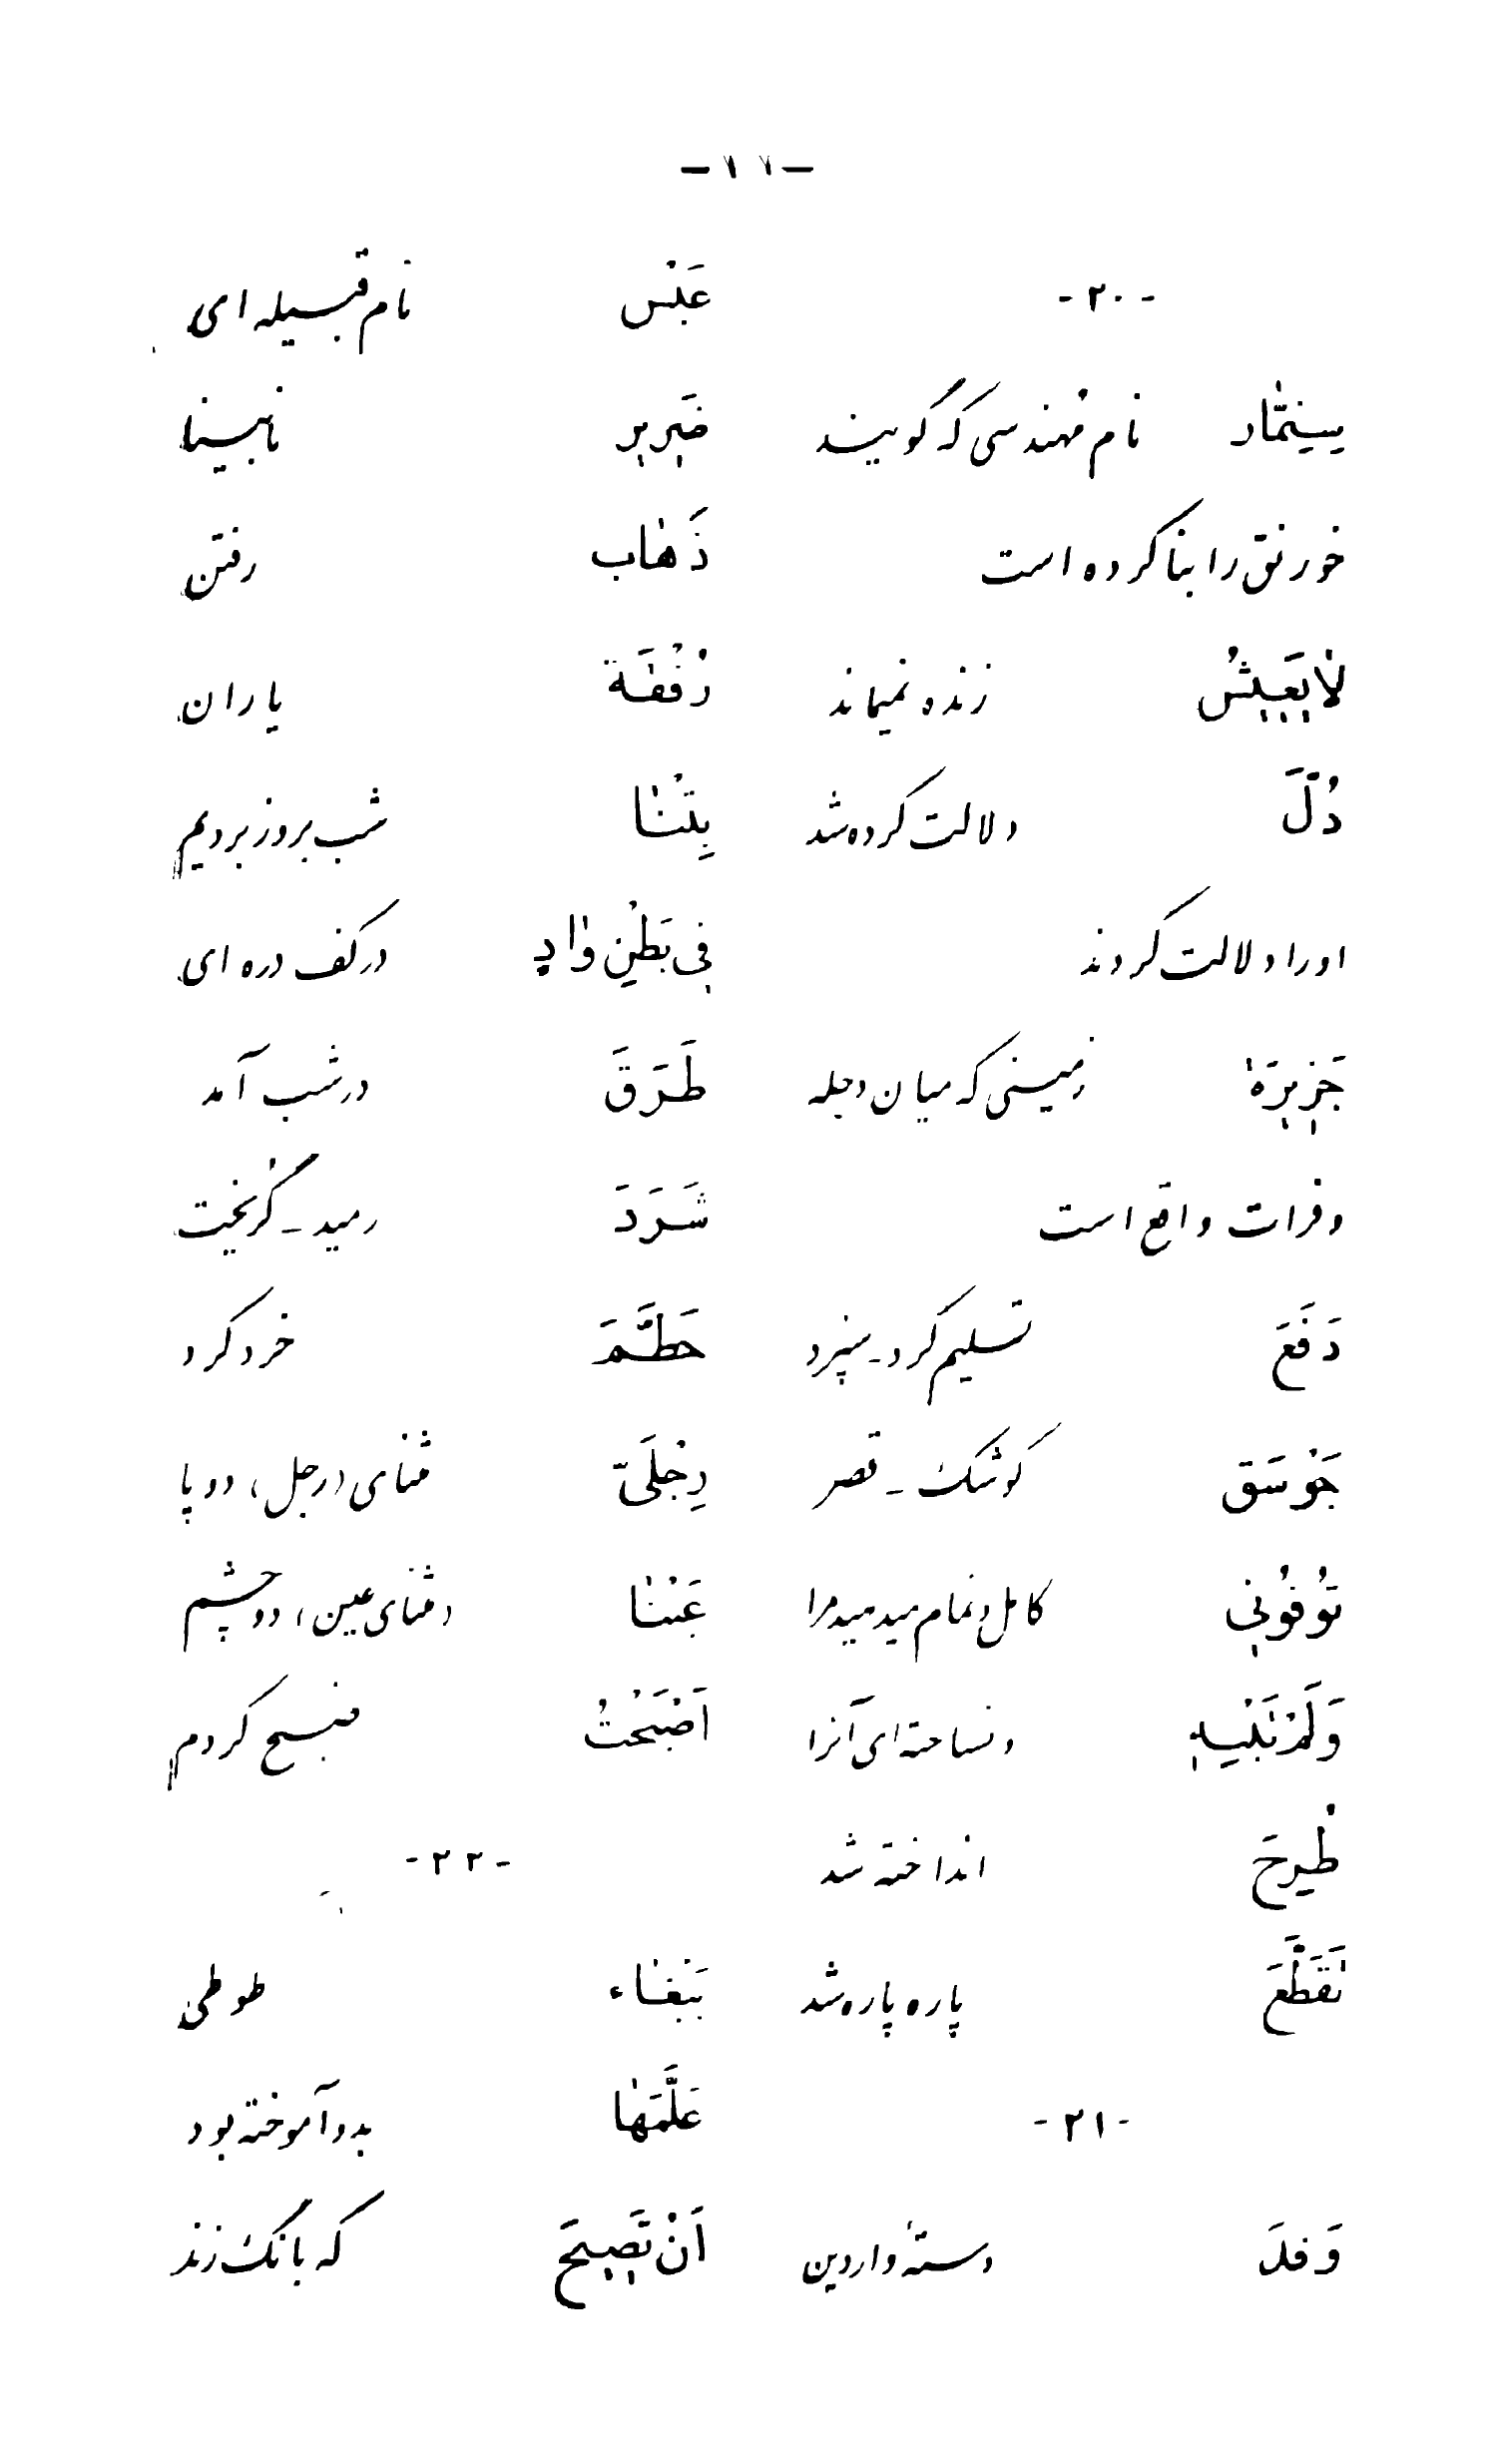 -۱۷-
-۲۰-
سِنِمّٰار نام مهندسی که گویند
خورنق را بنا کرده است
لٰا یَعیِشُ زنده نمیماند
دُلَّ دلالت کرده شد
او را دلالت کردند
جَزیِرَة زمینی که میان دجله
و فرات واقع است
دَفَعَ تسلیم کرد - سپرد
جَوْسَق کوشک - قصر
تُوفُونیِ کامل و تمام میدهید مرا
وَلَمْ تَبْنیِهِ و نساخته‌ای آنرا
طُرِحَ انداخته شد
تَقَطَّعَ پاره پاره شد
-۲۱-
وَفد دستهٔ واردین
عَبْس نام قبیله ای
ضَریِر نابینا
ذَهٰاب رفتن
رُفْقَة یاران
بِتْنٰا شب بروز بردیم
فیِ بَطْنِ وٰادٍ در کف دره ای
طَرَقَ در شب آمد
شَرَدَ رمید - گریخت
حَطَّمَ خرد کرد
رِجْلَیّ مثنای (رجل) دو پا
عَیْنٰا (مثنای عین) دو چشم
اَصْبَحْتُ صبح کردم
-۲۲-
بَبْغٰاء طوطی
عَلَّمَهٰا بدو آموخته بود
اَنْ تَصیِحَ که بانگ زند